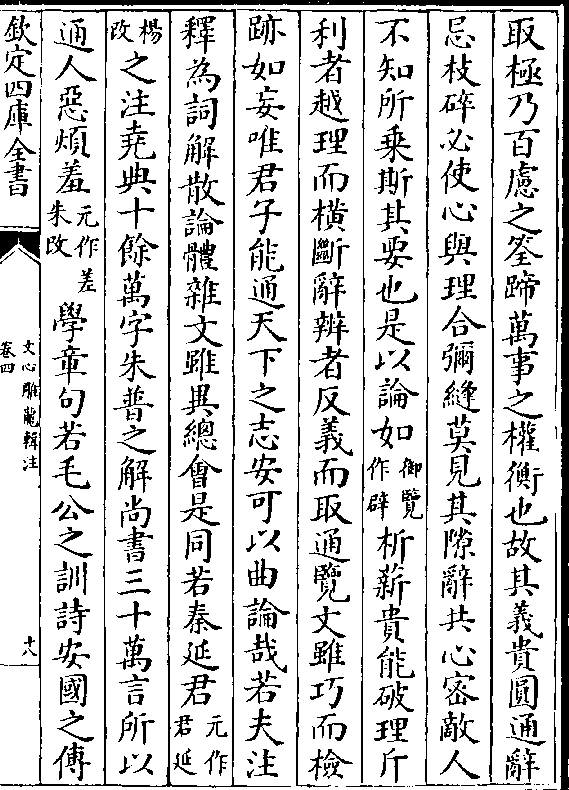 取極乃百慮之筌蹄萬事之權衡也故其義貴圓通辭
忌枝碎必使心與理合彌縫莫見其隙辭共心密敵人
不知所乗斯其要也是以論如御覽作辟析薪貴能破理斤
利者越理而橫斷辭辨者反義而取通覽文雖巧而檢
跡如妄唯君子能通天下之志安可以曲論哉若夫注
釋為詞解散論體雜文雖異總會是同若秦延君元作君延
楊改之注堯典十餘萬字朱普之解尚書三十萬言所以
通人惡煩羞元作差朱改學章句若毛公之訓詩安國之傳
欽定四庫全書
文心雕龍輯注
卷四
十八